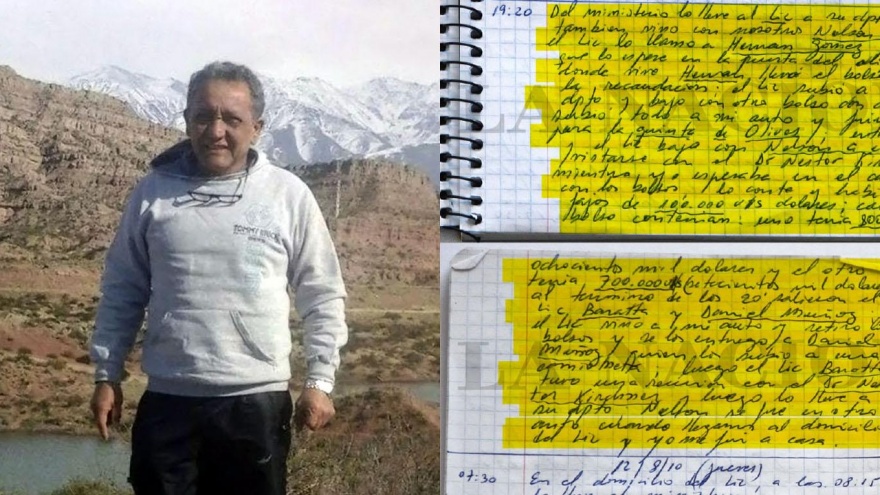 TOMMY
19:20 Del ministerio lo lleve al Lic a su dpto
tambien vino con nosotros Nelson
el Lic lo llamo a Hernan Gomez
que lo espere en la puerta del
donde vive Hernan llevó el bolso
la recaudacion; el Lic subio a
dpto y bajo con otro bolso
subio todo a mi auto y
para la quinta de Olivos y
el Lic bajo con Nelson a
con el Dr Nestor
mientras yo esperaba en el
con los bolsos, los conte y
fajos de 100.000 U$S dolares;
bolso contenian: uno tenia 800
ochociento mil dolares y el otro
tenia 700.000 U$S (setecientos mil dolares
al termino de los 20' salieron el
Lic Baratta y Daniel Muñoz
el Lic vino a mi auto y retiro
bolsos y se los entrego a Daniel
Muñoz, quien los subio a una
camioneta luego el Lic Baratta
tuvo una reunion con el Dr Nés
tor Kirchner, luego lo lleve a
su dpto Nelson se fue en otro
auto cuando llegamos al domicilio
del Lic y yo me fui a casa.
12/8/10 (jueves)
07:30 En el domicilio del Lic, a las 08.15